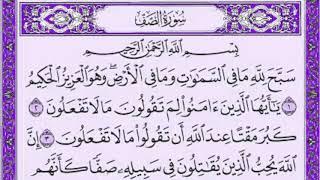 سُورَةُ الصَّفِّ
بِسْمِ اللَّهِ الرَّحْمَٰنِ الرَّحِيمِ
سَبَّحَ لِلَّهِ مَا فِي السَّمَٰوَٰتِ وَمَا فِي الْأَرْضِ ۖ وَهُوَ الْعَزِيزُ الْحَكِيمُ
١ يَٰٓأَيُّهَا الَّذِينَ ءَامَنُوا لِمَ تَقُولُونَ مَا لَا تَفْعَلُونَ ٢
كَبُرَ مَقْتًا عِندَ اللَّهِ أَن تَقُولُوا مَا لَا تَفْعَلُونَ ٣ إِنَّ
اللَّهَ يُحِبُّ الَّذِينَ يُقَٰتِلُونَ فِي سَبِيلِهِ صَفًّا كَأَنَّهُم